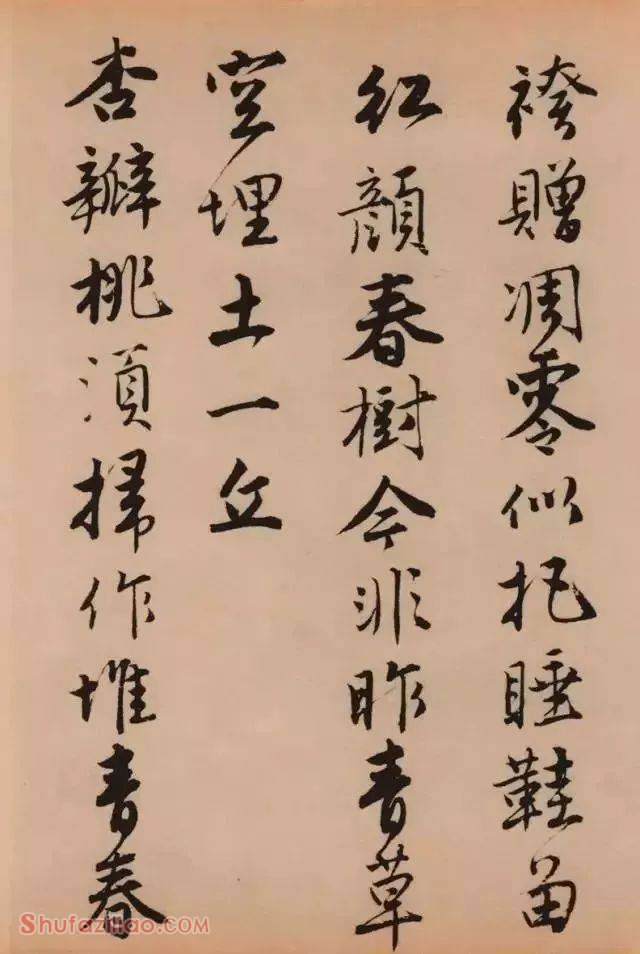 袴贈凋零似把睡鞋留
紅顏春樹今非昨青草
空埋土一丘
杏瓣桃須掃作堆青春
Shufaziliao.com